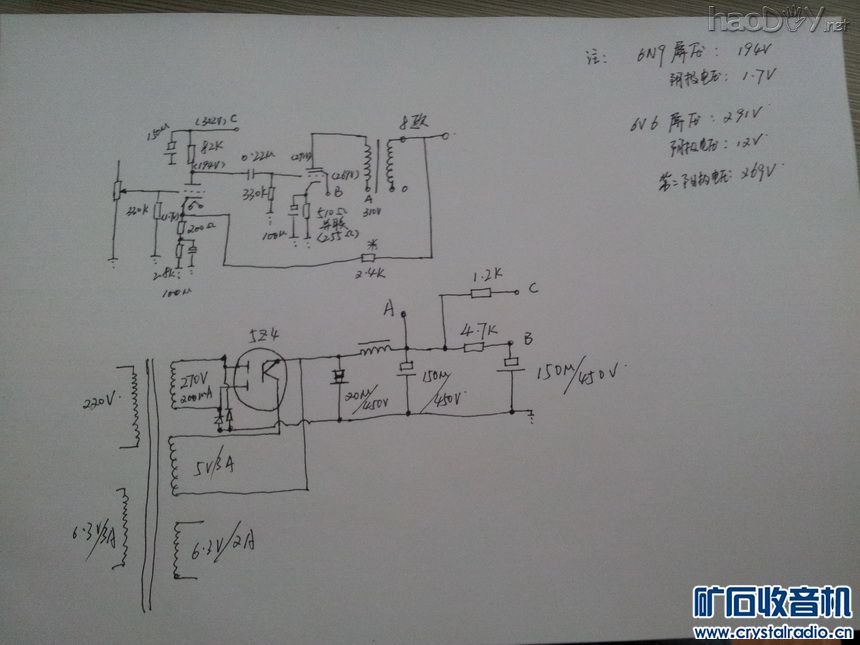 haoDIY.net
注: 6N9 屏压: 194V
阴极电压: 1.7V
6V6 屏压: 291V
阴极电压: 12V
第二阳极电压: 269V
(302V) C
150μ
82K
(194V)
0.22μ
330K
(1.7V)
200Ω
2.8K
100μ
330K
(291V)
(269V)
B
A
310V
8欧
0
100μ
510Ω
并联
(255Ω)
*
2.4K
1.2K
C
A
4.7K
B
5Z4
220V
270V
200mA
20μ/450V
150μ/450V
150μ/450V
5V/3A
6.3V/3A
6.3V/2A
矿石收音机
www.crystalradio.cn